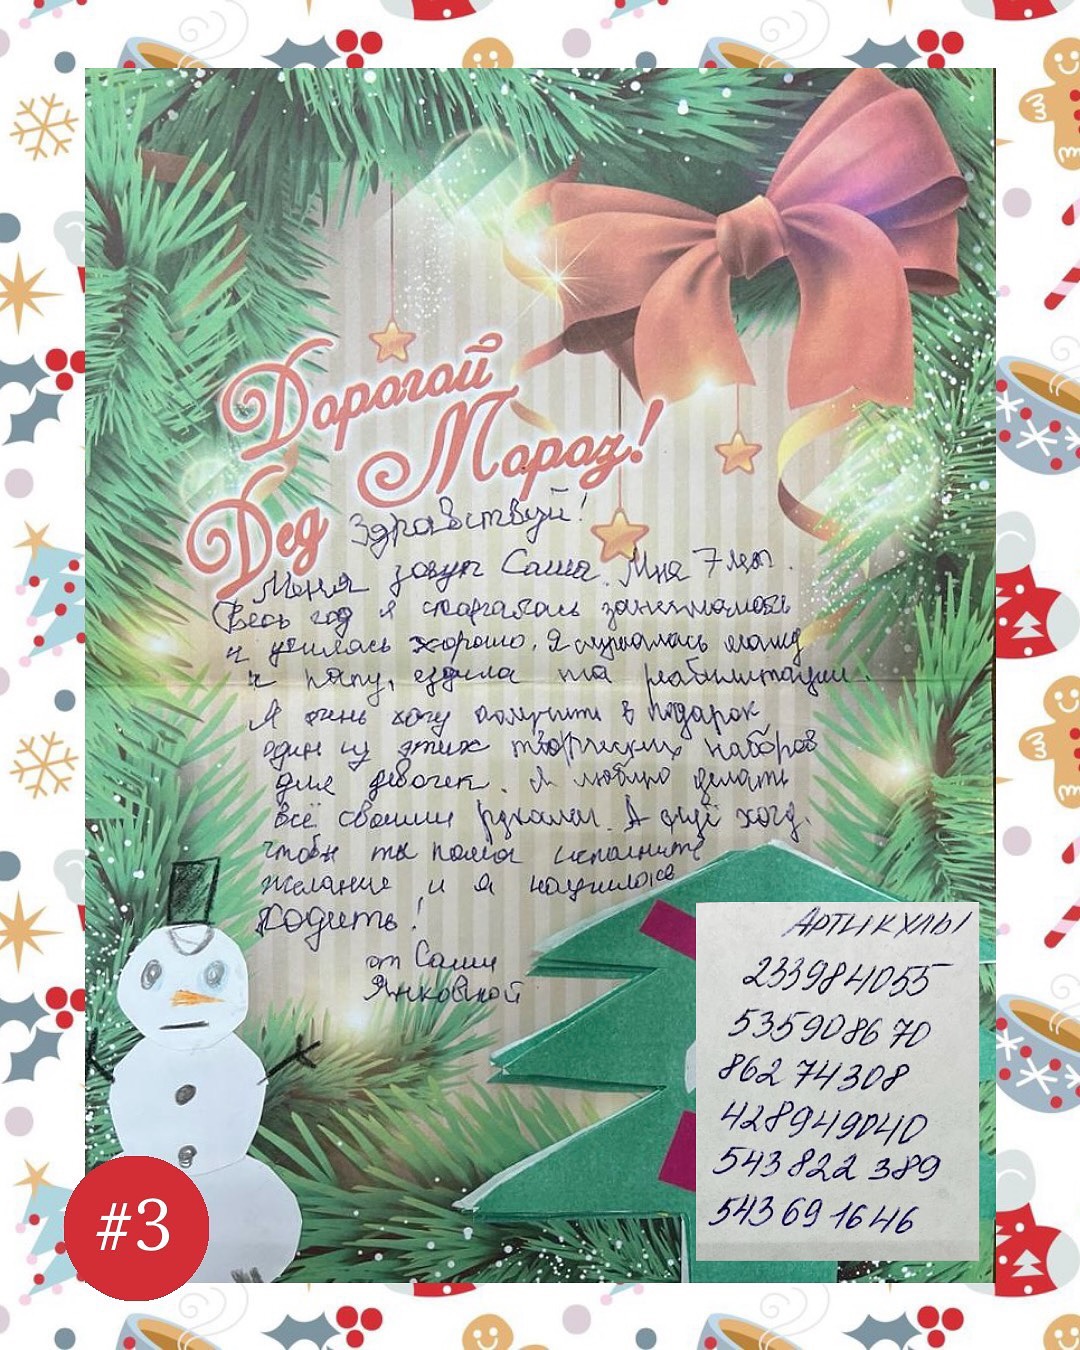 Дорогой
Дед Мороз!
Здравствуй!
Меня зовут Саша. Мня 7 лет.
Весь год я старалась заниматся
и училась хорошо. Я слушалась маму
и папу, ездила на реабилитации.
Я очень хочу получить в подарок
один из этих творческих наборов
для девочек. Я люблю делать
всё своими руками. А ещё хочу,
чтобы ты помог исполнить
желание и я научилась
ходить!
от Саши
Янковной
АРТИКУЛЫ
233984055
535908670
86274308
428949040
543822389
543691646
#3